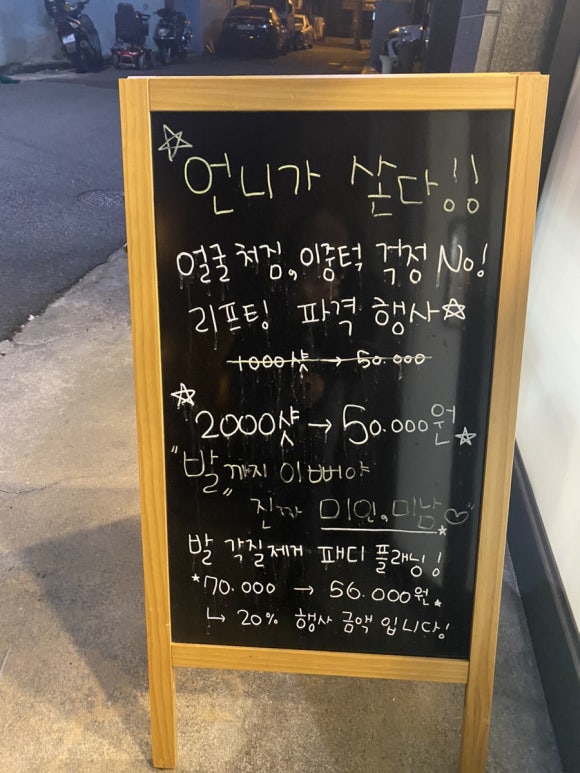 언니가 쏜다!!
얼굴 처짐, 이중턱 걱정 No!
리프팅 파격 행사
1000샷 → 50.000
2000샷 → 50.000원
"발"까지 이뻐야
진짜 미인, 미남
발 각질제거 패디 플래닝!
70.000 → 56.000원
↳ 20% 행사 금액 입니다!